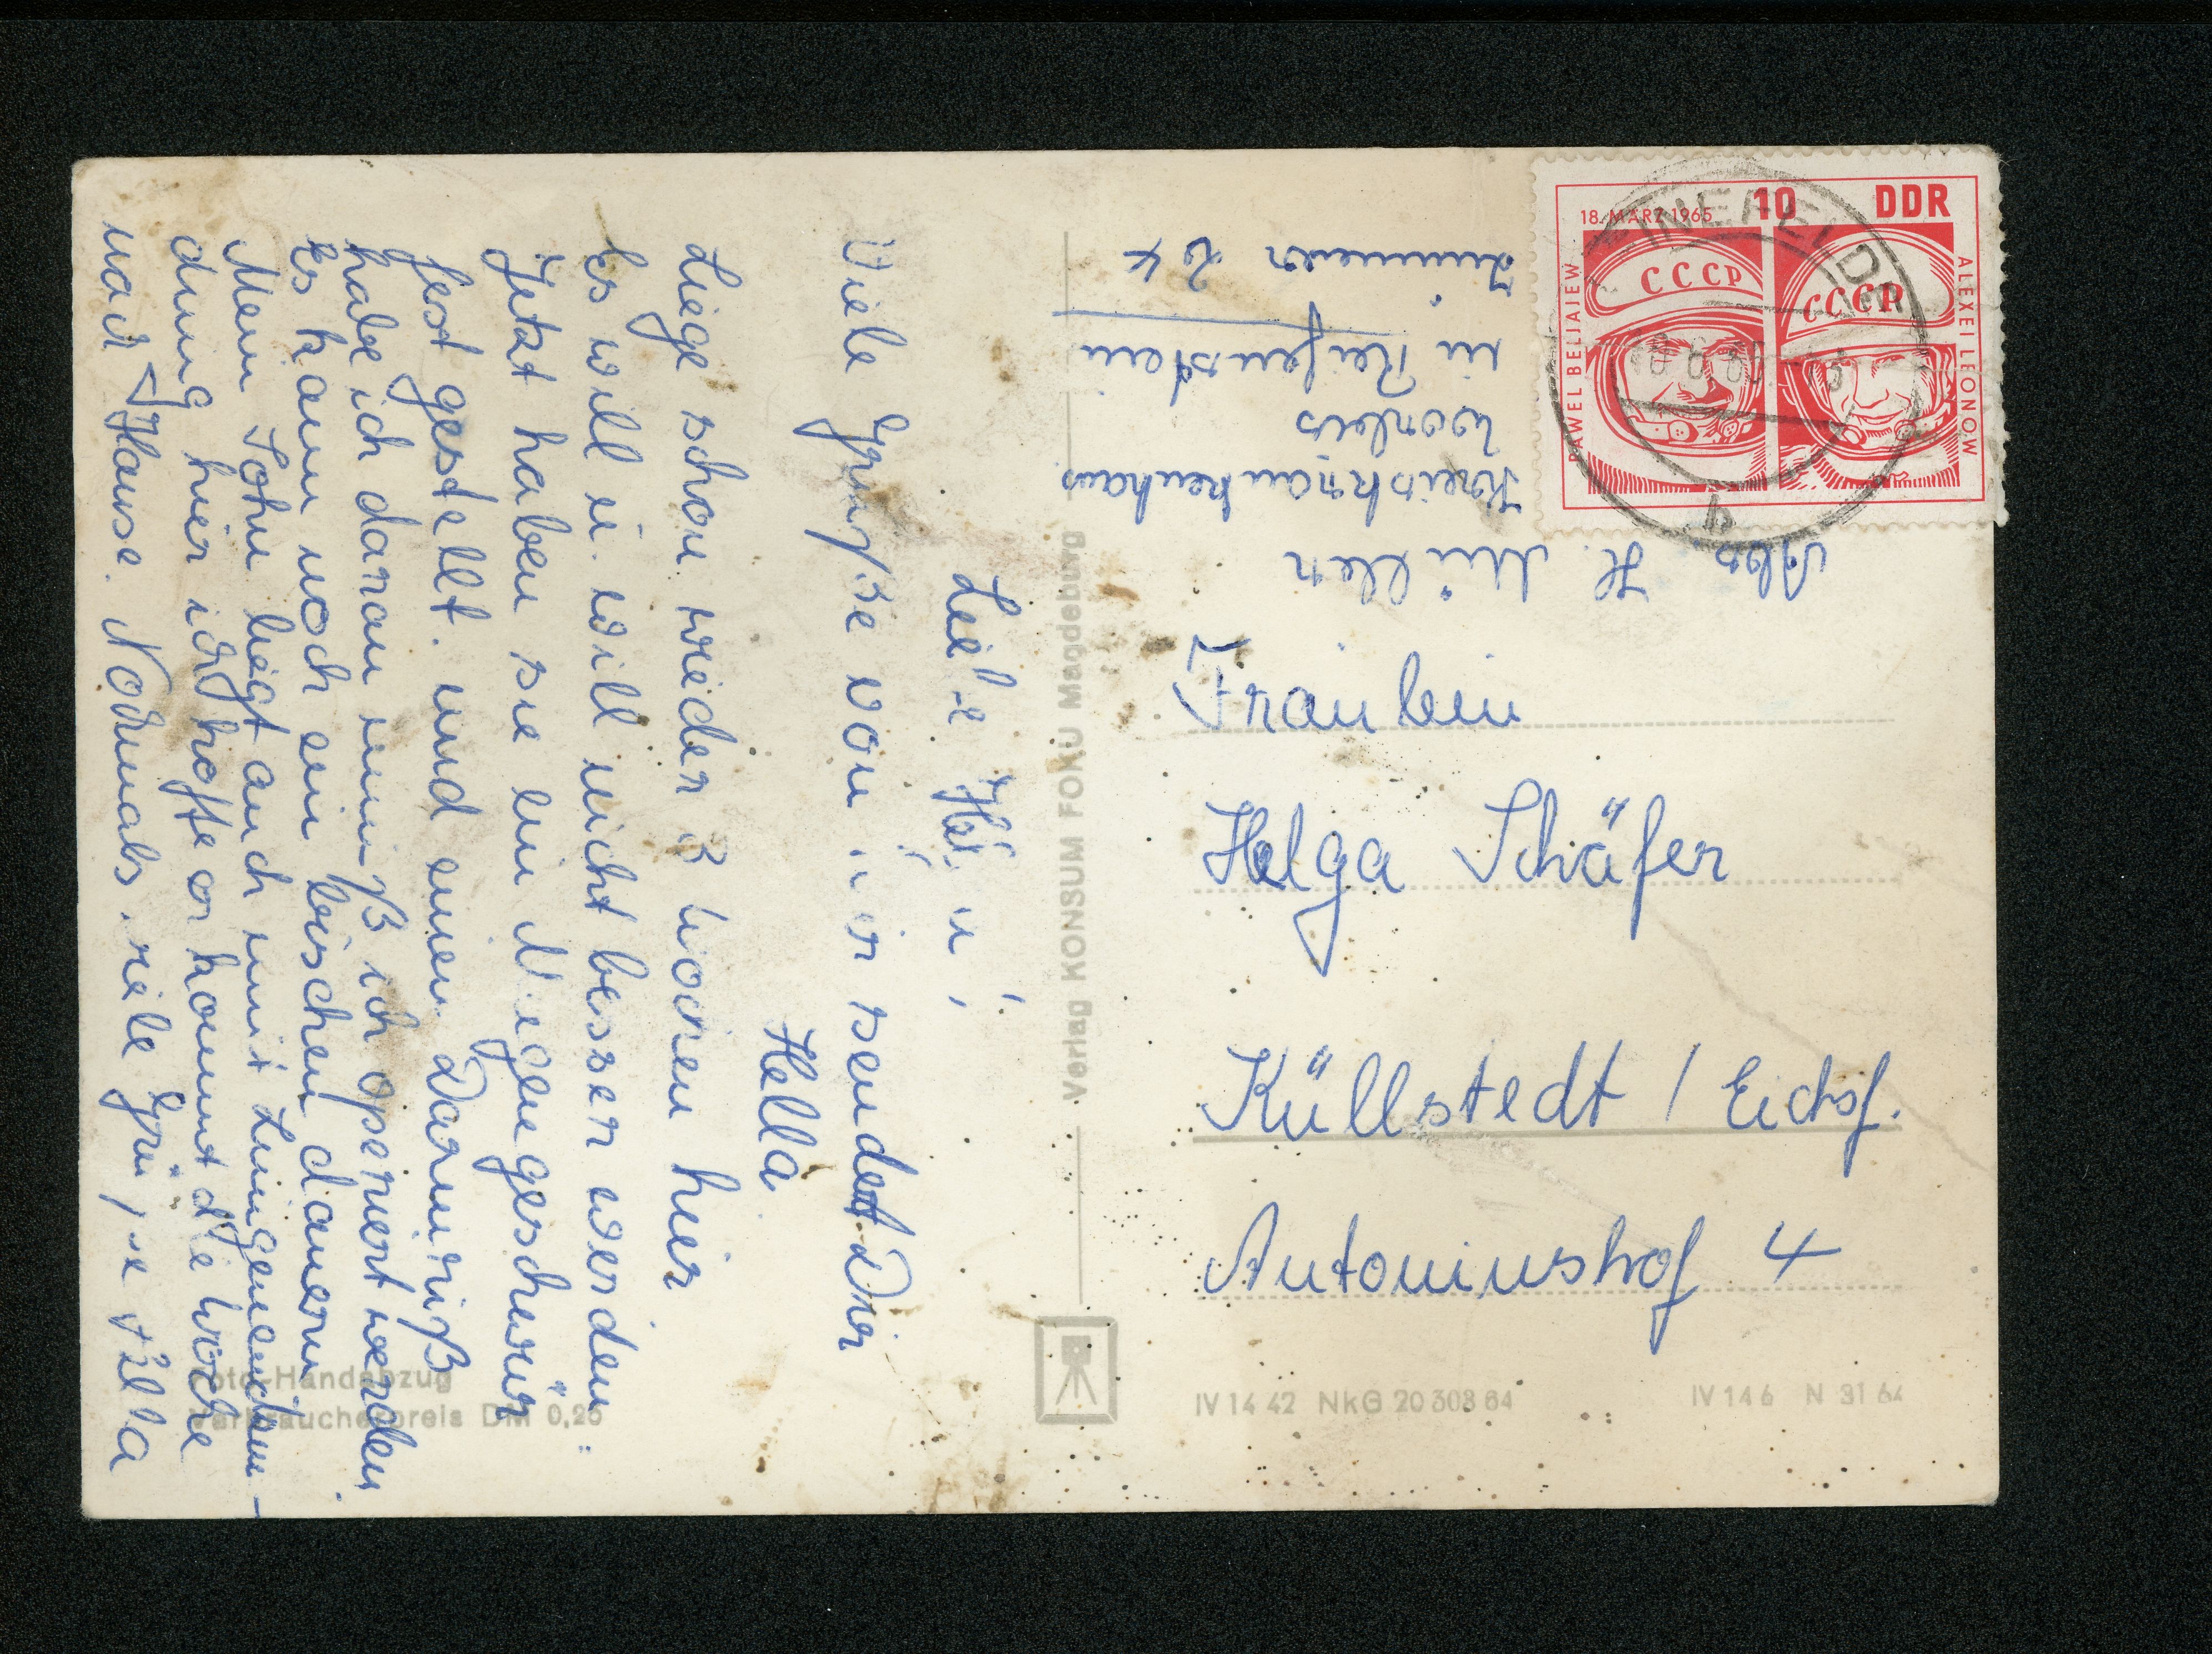 Liebe
Viele Grüße von hier sendet Dir
Hella
Liege schon wieder 3 Wochen hier
Es will u. will nicht besser werden.
Jetzt haben sie ein Magengeschwür
fest gestellt. und einen Darmriß
habe ich daran muß ich operiert werden.
Es kann noch ein bischen dauern
Mein Sohn liegt auch mit Lungenentzün-
dung hier ich hoffe er kommt die Woche
nach Hause. Nochmals viele Grüße Hella
Abs. H. Müller
Kreiskrankenhaus
Worbis
in Reifenstein
Zimmer 24
Fräulein
Helga Schäfer
Küllstedt / Eichsf.
Antoniushof 4
18. MÄRZ 1965 10 DDR
PAWEL BELJAJEW
ALEXEI LEONOW
CCCP
CCCP
b
Verlag KONSUM FOKU Magdeburg
Foto-Handabzug
Verbraucherpreis DM 0,25
IV 14 42 NkG 20 303 64
IV 14 6 N 31 64